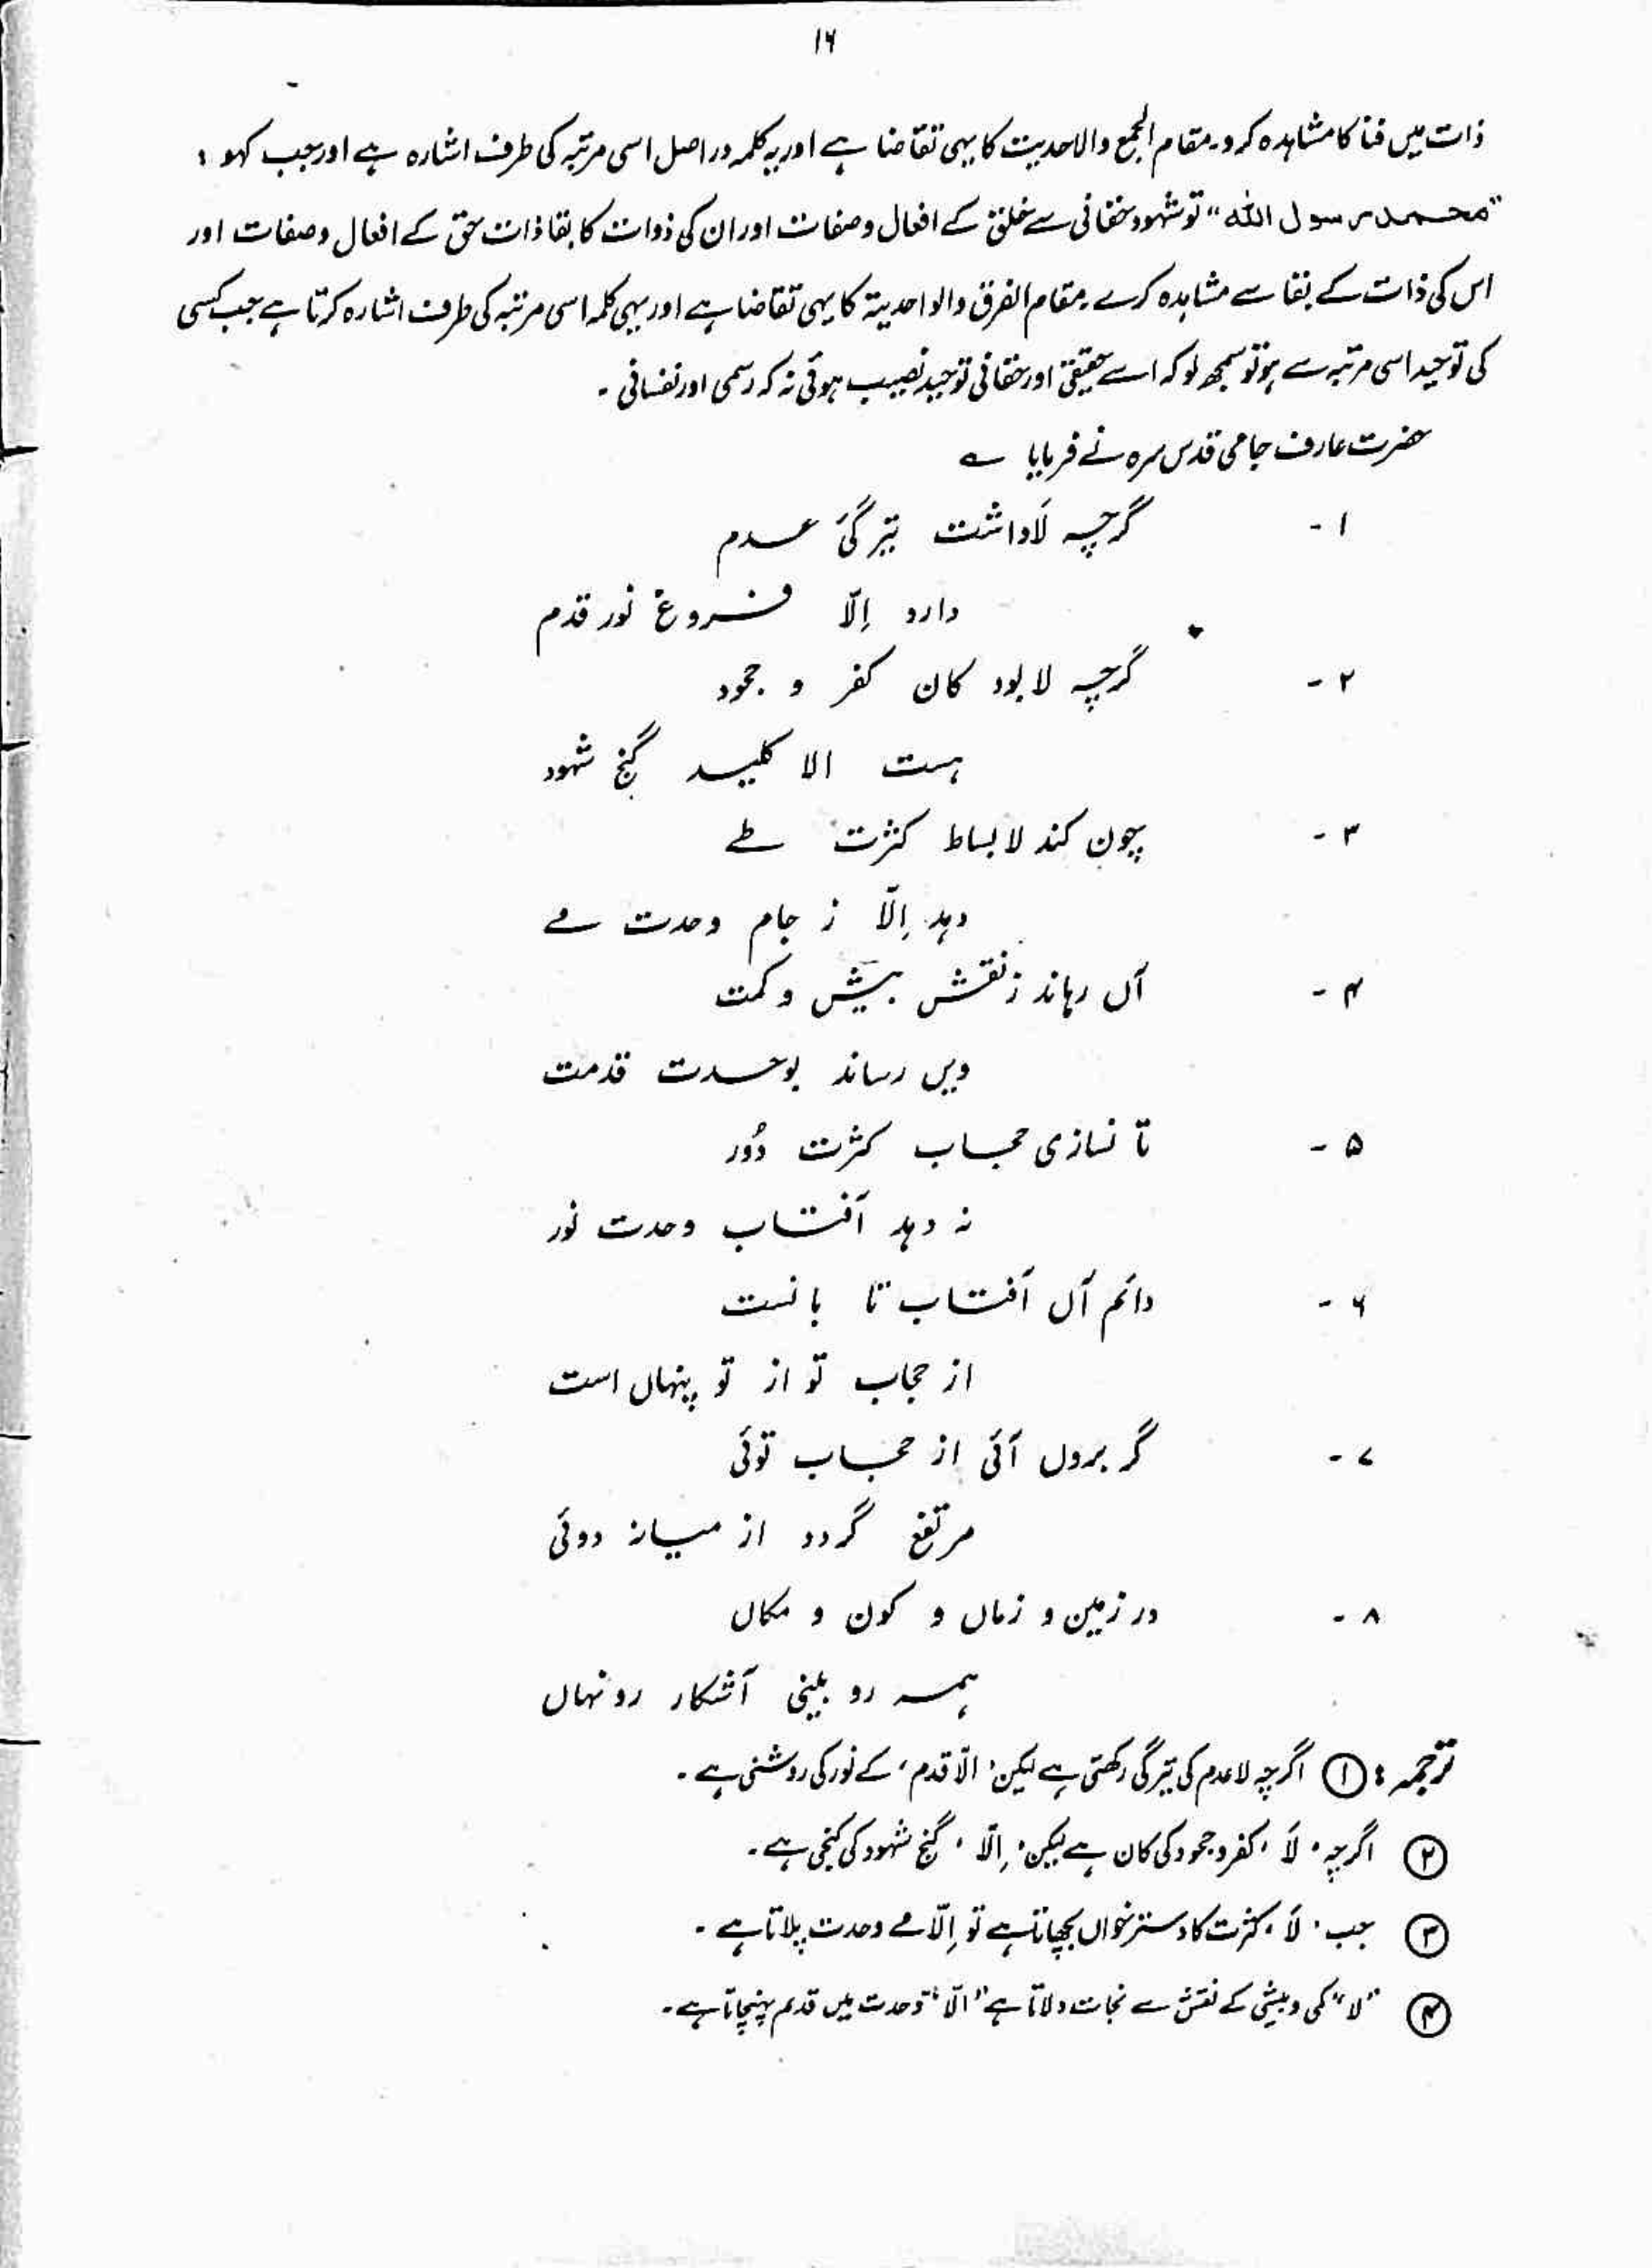 ۱۶
ذات میں فنا کا مشاہدہ کرو۔ مقام الجمع والاحدیت کا یہی تقاضا ہے اور یہ کلمہ در اصل اسی مرتبہ کی طرف اشارہ ہے اور جب کہو :
"محمد رسول اللہ" تو شہود حقانی سے خلق کے افعال و صفات اور ان کی ذوات کا بقا ذات حق کے افعال و صفات اور
اس کی ذات کے بقا سے مشاہدہ کرے۔ مقام الفرق والواحدیۃ کا یہی تقاضا ہے اور یہی کلمہ اسی مرتبہ کی طرف اشارہ کرتا ہے جب کسی
کی توحید اسی مرتبہ سے ہو تو سمجھ لو کہ اسے حقیقی اور حقانی توحید نصیب ہوئی نہ کہ رسمی اور نفسانی ۔
حضرت عارف جامی قدس سرہ نے فرمایا ؎
۱ - گرچہ لَا داشت تیرگیٔ عدم
دارد اِلّا فروغ نور قدم
۲ - گرچہ لا بود کان کفر و جحود
ہست الا کلید گنج شہود
۳ - چون کند لا بساط کثرت طے
دہد اِلّا ز جام وحدت مے
۴ - آں رہاند ز نقش بیش و کمت
ویں رساند بوحدت قدمت
۵ - تا نسازی حجاب کثرت دُور
نہ دہد آفتاب وحدت نور
۶ - دائم آں آفتاب تا بانست
از حجاب تو از تو پنہاں است
۷ - گر بروں آئی از حجاب توئی
مرتفع گردد از میانہ دوئی
۸ - در زمین و زماں و کون و مکاں
ہمہ رو بینی آشکار رو نہاں
ترجمہ : ① اگرچہ لا عدم کی تیرگی رکھتی ہے لیکن ' الّا قدم ' کے نور کی روشنی ہے ۔
② اگرچہ ' لَا ' کفر و جحود کی کان ہے لیکن ' اِلّا ' گنج شہود کی کنجی ہے ۔
③ جب ' لَا ' کثرت کا دسترخوان بچھاتا ہے تو اِلّا مے وحدت پلاتا ہے ۔
④ "لا" کمی و بیشی کے نقش سے نجات دلاتا ہے "الّا" وحدت میں قدم پہنچاتا ہے ۔